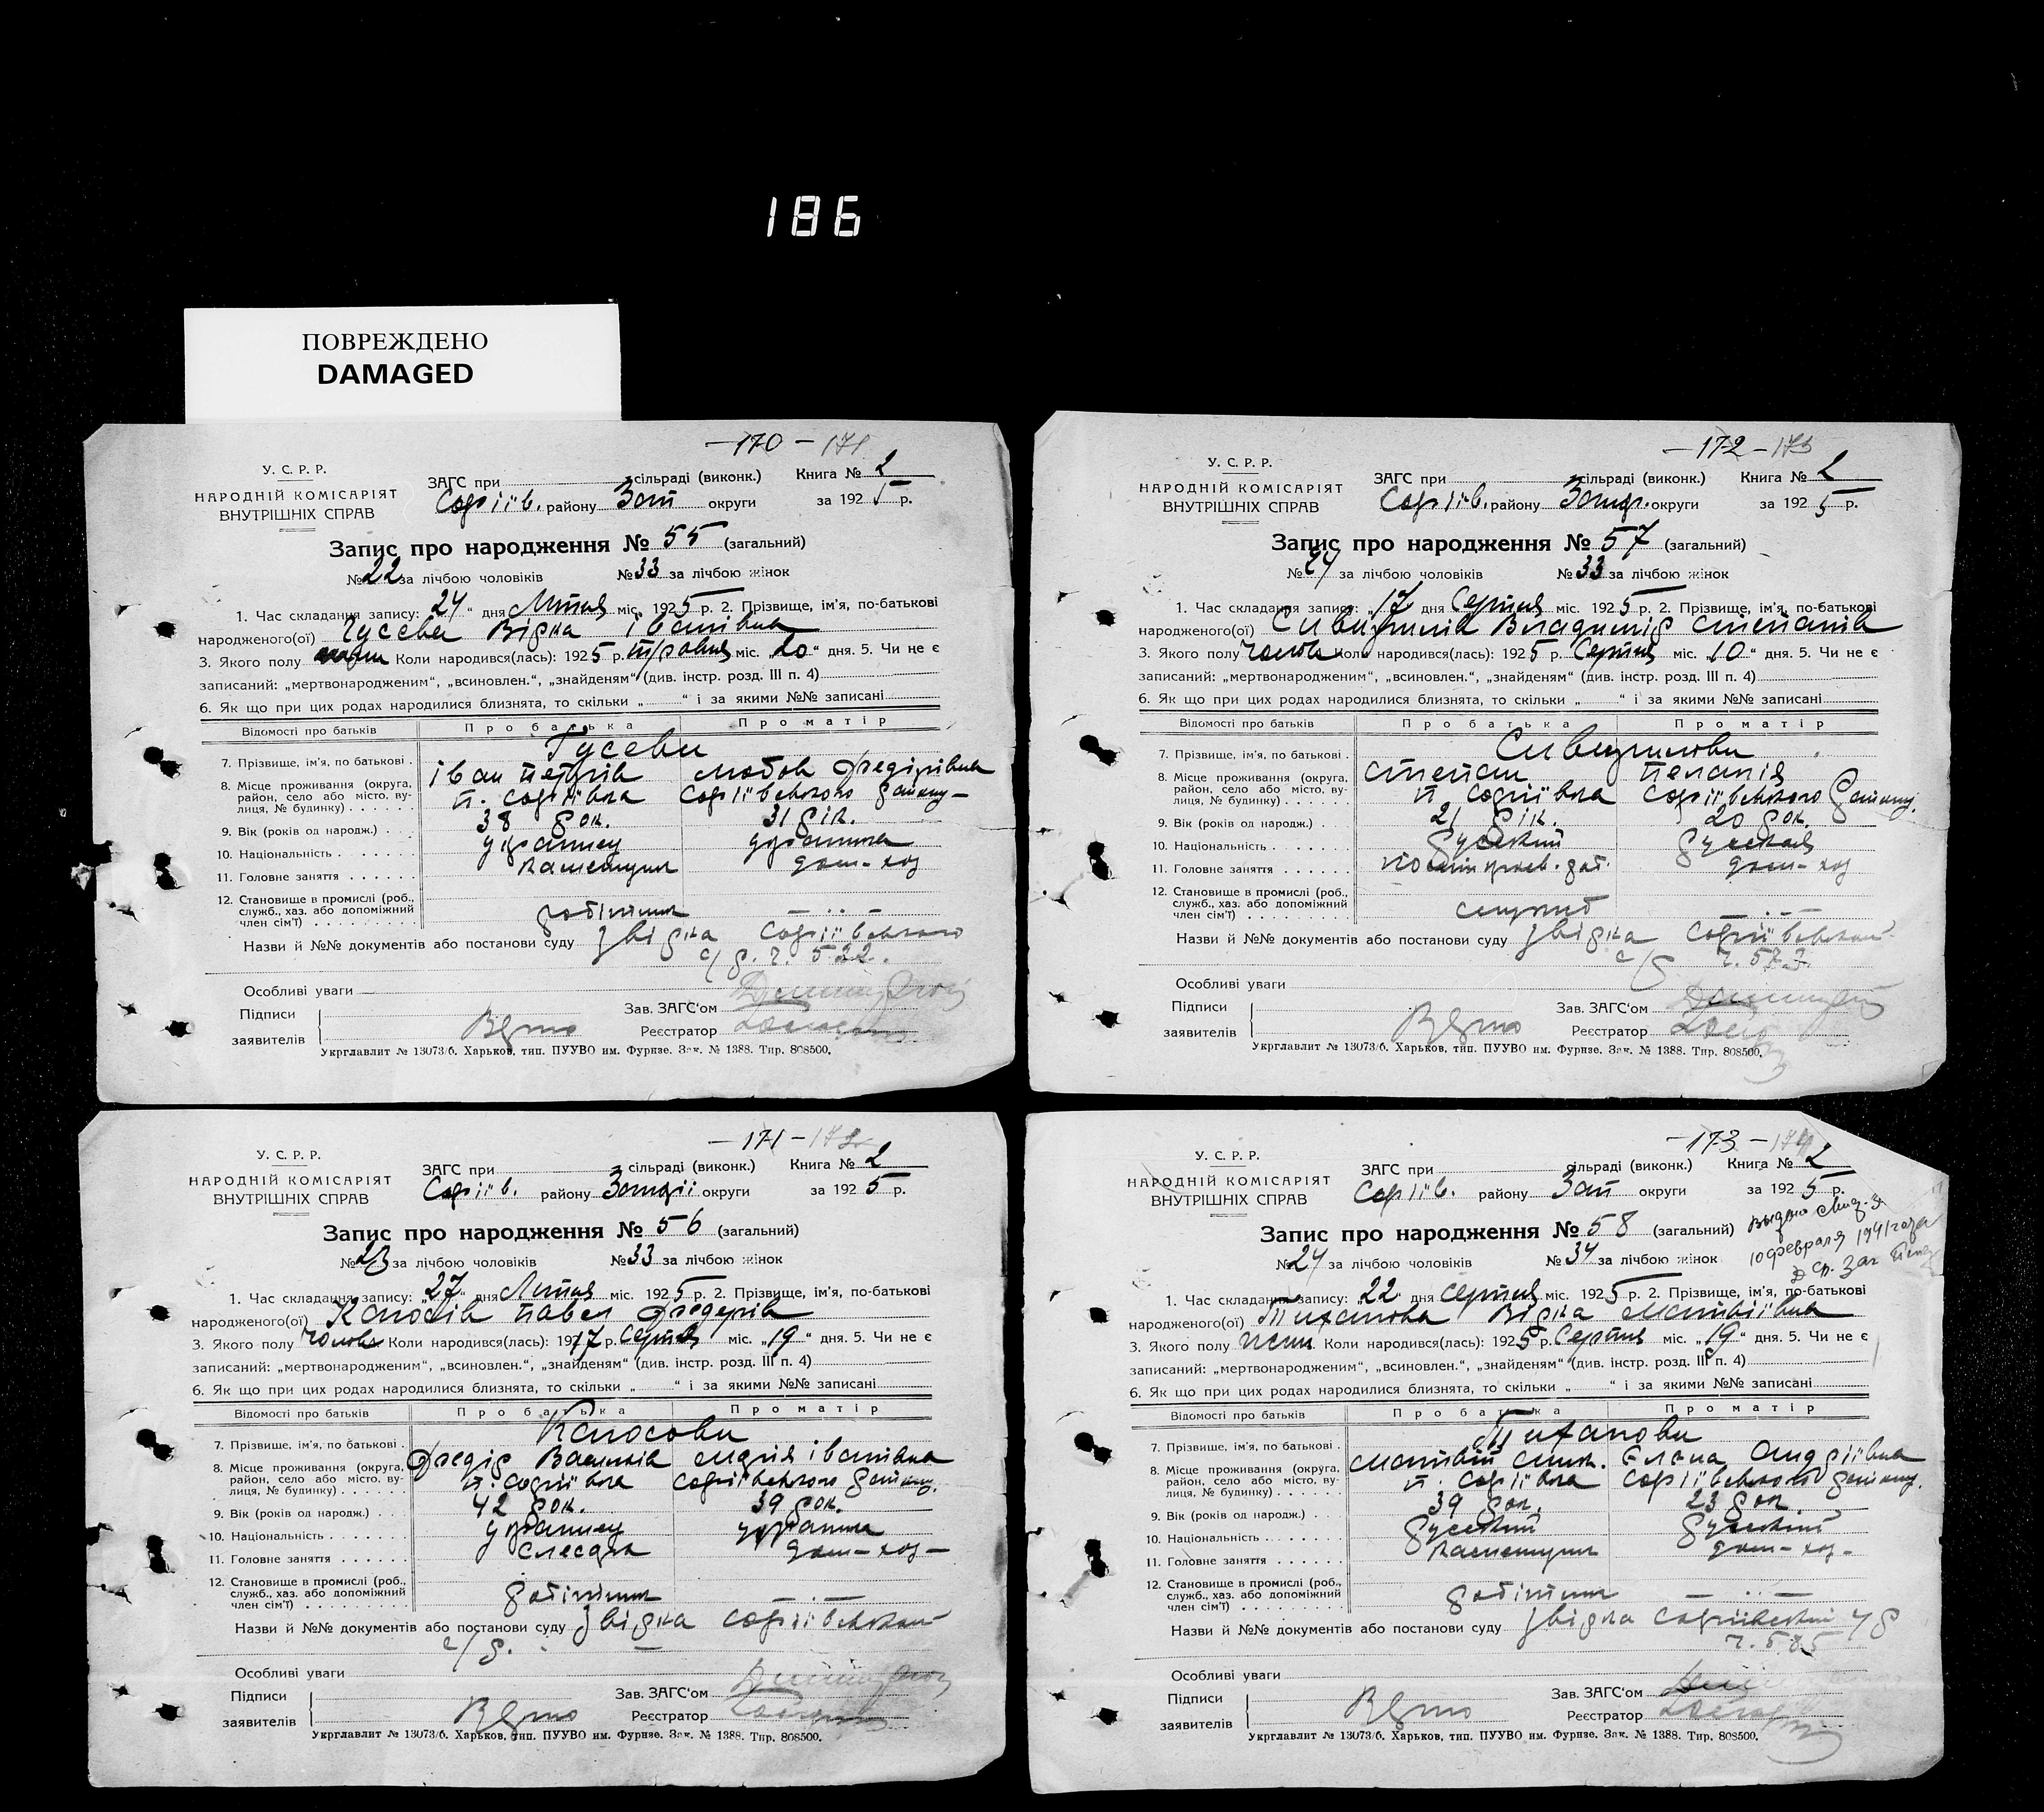 186
ПОВРЕЖДЕНО
DAMAGED
—170— 171
У. С. Р. Р.
НАРОДНІЙ КОМІСАРІЯТ
ВНУТРІШНІХ СПРАВ
ЗАГС при сільраді (виконк.) Книга № 2
Софіїв. району Зап округи за 1925 р.
Запис про народження № 55 (загальний)
№ 22 за лічбою чоловіків № 33 за лічбою жінок
1. Час складання запису: „24“ дня Липня міс. 1925 р. 2. Прізвище, ім’я, по-батькові
народженого(ої) Гусева Вірка Іванівна
3. Якого полу Коли народився(лась): 1925 р. травня міс. „20“ дня. 5. Чи не є
записаний: „мертвонародженим“, „всиновлен.“, „знайденям“ (див. інстр. розд. III п. 4)
6. Як що при цих родах народилися близнята, то скільки „ “ і за якими №№ записані
Відомості про батьків Про батька Про матір
Гусеви
7. Прізвище, ім’я, по батькові Іван Петрів Любов Федірівна
8. Місце проживання (округа, район, село або місто, вулиця, № будинку) п. Софіївка Софіївського району
9. Вік (років од народж.) 38 рок. 31 рік.
10. Національність українец українка
11. Головне заняття дом-хоз
12. Становище в промислі (роб., служб., хаз. або допоміжний член сім’ї) робітник
Назви й №№ документів або постанови суду Звірка Софіївського
с/р. ч. 522.
Особливі уваги
Підписи
заявителів
Зав. ЗАГС‘ом
Верно Реєстратор
Укрглавлит № 13073/б. Харьков, тип. ПУУВО им. Фурнзе. Зак. № 1388. Тир. 808500.
—172— 173
У. С. Р. Р.
НАРОДНІЙ КОМІСАРІЯТ
ВНУТРІШНІХ СПРАВ
ЗАГС при сільраді (виконк.) Книга № 2
Софіїв. району округи за 1925 р.
Запис про народження № 57 (загальний)
№ 24 за лічбою чоловіків № 33 за лічбою жінок
1. Час складання запису: „17 дня Серпня міс. 1925 р. 2. Прізвище, ім’я, по-батькові
народженого(ої) Владимір Степанів
3. Якого полу чолов Коли народився(лась): 1925 р. Серпня міс. „10“ дня. 5. Чи не є
записаний: „мертвонародженим“, „всиновлен.“, „знайденям“ (див. інстр. розд. III п. 4)
6. Як що при цих родах народилися близнята, то скільки „ “ і за якими №№ записані
Відомості про батьків Про батька Про матір
7. Прізвище, ім’я, по батькові Степан Пелапія
8. Місце проживання (округа, район, село або місто, вулиця, № будинку) п Софіївка Софіївського району
9. Вік (років од народж.) 21 рік. 20 рок.
10. Національність руський руская
11. Головне заняття дом-хоз
12. Становище в промислі (роб., служб., хаз. або допоміжний член сім’ї)
Назви й №№ документів або постанови суду Звірка
с/р ч. 573.
Особливі уваги
Підписи
заявителів
Зав. ЗАГС‘ом
Верно Реєстратор
Укрглавлит № 13073/б. Харьков, тип. ПУУВО им. Фурнзе. Зак. № 1388. Тир. 808500.
—171— 172
У. С. Р. Р.
НАРОДНІЙ КОМІСАРІЯТ
ВНУТРІШНІХ СПРАВ
ЗАГС при сільраді (виконк.) Книга № 2
Софіїв. району округи за 1925 р.
Запис про народження № 56 (загальний)
№ 23 за лічбою чоловіків № 33 за лічбою жінок
1. Час складання запису: „27“ дня Липня міс. 1925 р. 2. Прізвище, ім’я, по-батькові
народженого(ої) Колосів Павел Федерів
3. Якого полу чолов Коли народився(лась): 1917 р. Серпня міс. „19“ дня. 5. Чи не є
записаний: „мертвонародженим“, „всиновлен.“, „знайденям“ (див. інстр. розд. III п. 4)
6. Як що при цих родах народилися близнята, то скільки „ “ і за якими №№ записані
Відомості про батьків Про батька Про матір
Колосови
7. Прізвище, ім’я, по батькові Федір Васильів Марія Іванівна
8. Місце проживання (округа, район, село або місто, вулиця, № будинку) п. Софіївка Софіївського району.
9. Вік (років од народж.) 42 рок. 39 рок.
10. Національність українец українка
11. Головне заняття слесарь дом-хоз-
12. Становище в промислі (роб., служб., хаз. або допоміжний член сім’ї) робітник
Назви й №№ документів або постанови суду Звірка
с/р.
Особливі уваги
Підписи
заявителів
Зав. ЗАГС‘ом
Верно Реєстратор
Укрглавлит № 13073/б. Харьков, тип. ПУУВО им. Фурнзе. Зак. № 1388. Тир. 808500.
—173— 174
У. С. Р. Р.
НАРОДНІЙ КОМІСАРІЯТ
ВНУТРІШНІХ СПРАВ
ЗАГС при сільраді (виконк.) Книга № 2
Софіїв. району Зап округи за 1925 р.
выдано
10 февраля 1941 года
Запис про народження № 58 (загальний)
№ 24 за лічбою чоловіків № 34 за лічбою жінок
1. Час складання запису: „22“ дня Серпня міс. 1925 р. 2. Прізвище, ім’я, по-батькові
народженого(ої) Тиханова Вірка Матвіївна
3. Якого полу жін Коли народився(лась): 1925 р. Серпня міс. „19“ дня. 5. Чи не є
записаний: „мертвонародженим“, „всиновлен.“, „знайденям“ (див. інстр. розд. III п. 4)
6. Як що при цих родах народилися близнята, то скільки „ “ і за якими №№ записані
Відомості про батьків Про батька Про матір
Тиханови
7. Прізвище, ім’я, по батькові Матвій Елена Андріївна
8. Місце проживання (округа, район, село або місто, вулиця, № будинку) п. Софіївка Софіївського району.
9. Вік (років од народж.) 39 рок. 23 рок.
10. Національність руський руський
11. Головне заняття дом-хоз-
12. Становище в промислі (роб., служб., хаз. або допоміжний член сім’ї) робітник
Назви й №№ документів або постанови суду Звірка с/р
ч. 585
Особливі уваги
Підписи
заявителів
Зав. ЗАГС‘ом
Верно Реєстратор
Укрглавлит № 13073/б. Харьков, тип. ПУУВО им. Фурнзе. Зак. № 1388. Тир. 808500.